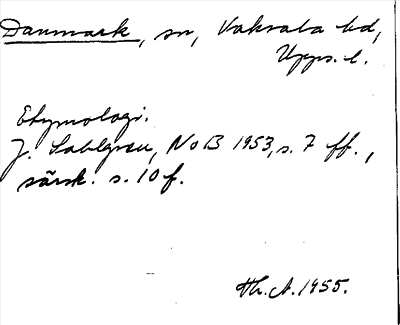 Danmark, sn, Vaksala hd,
Upps. l.
Etymologi.
J. Sahlgren, NoB 1953, s. 7 ff.,
särsk. s. 10 f.
Hh. A. 1955.